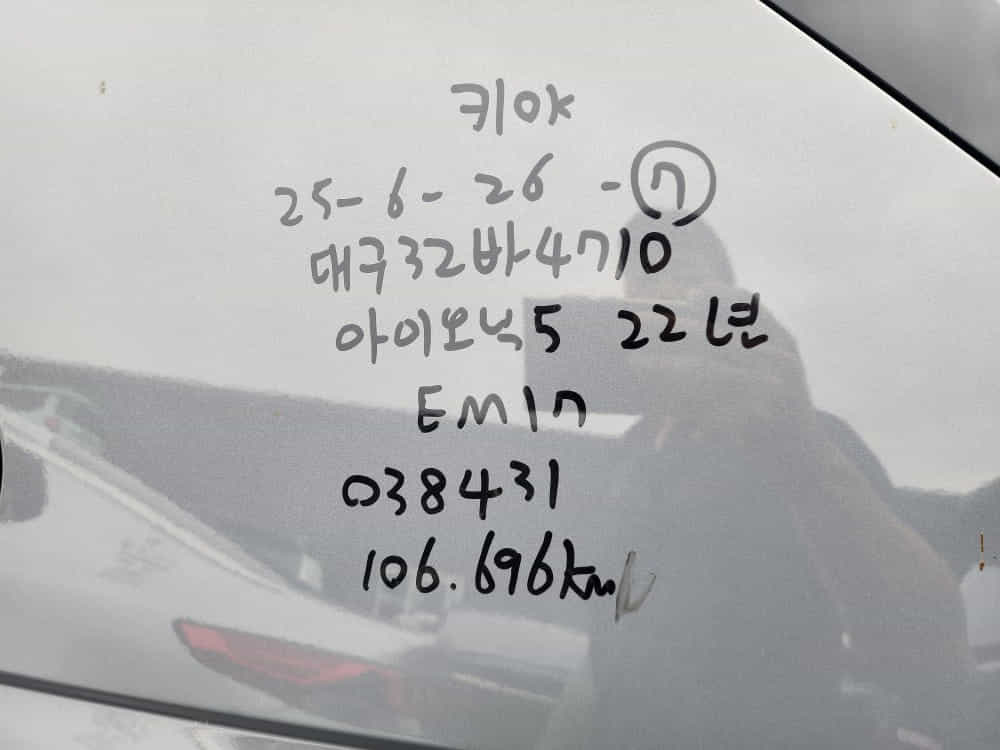 키ok
25-6-26-⑦
대구32바4710
아이오닉5 22년
EM17
038431
106.696km